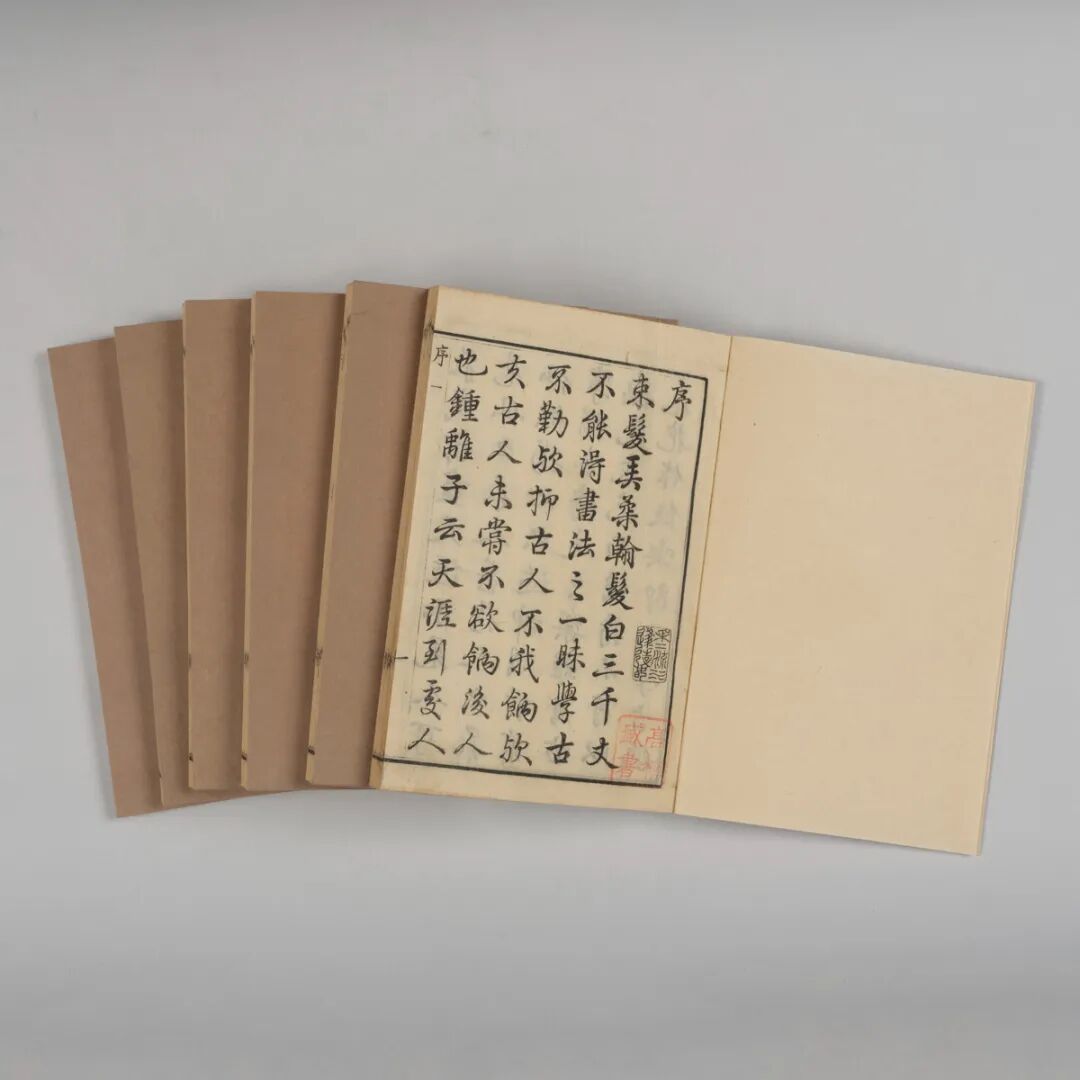 序
束髮弄柔翰髮白三千丈
不能得書法之一昧學古
不勤歟抑古人不我餉歟
夫古人未嘗不欲餉後人
也鍾離子云天涯到處人
序 一
高
藏書